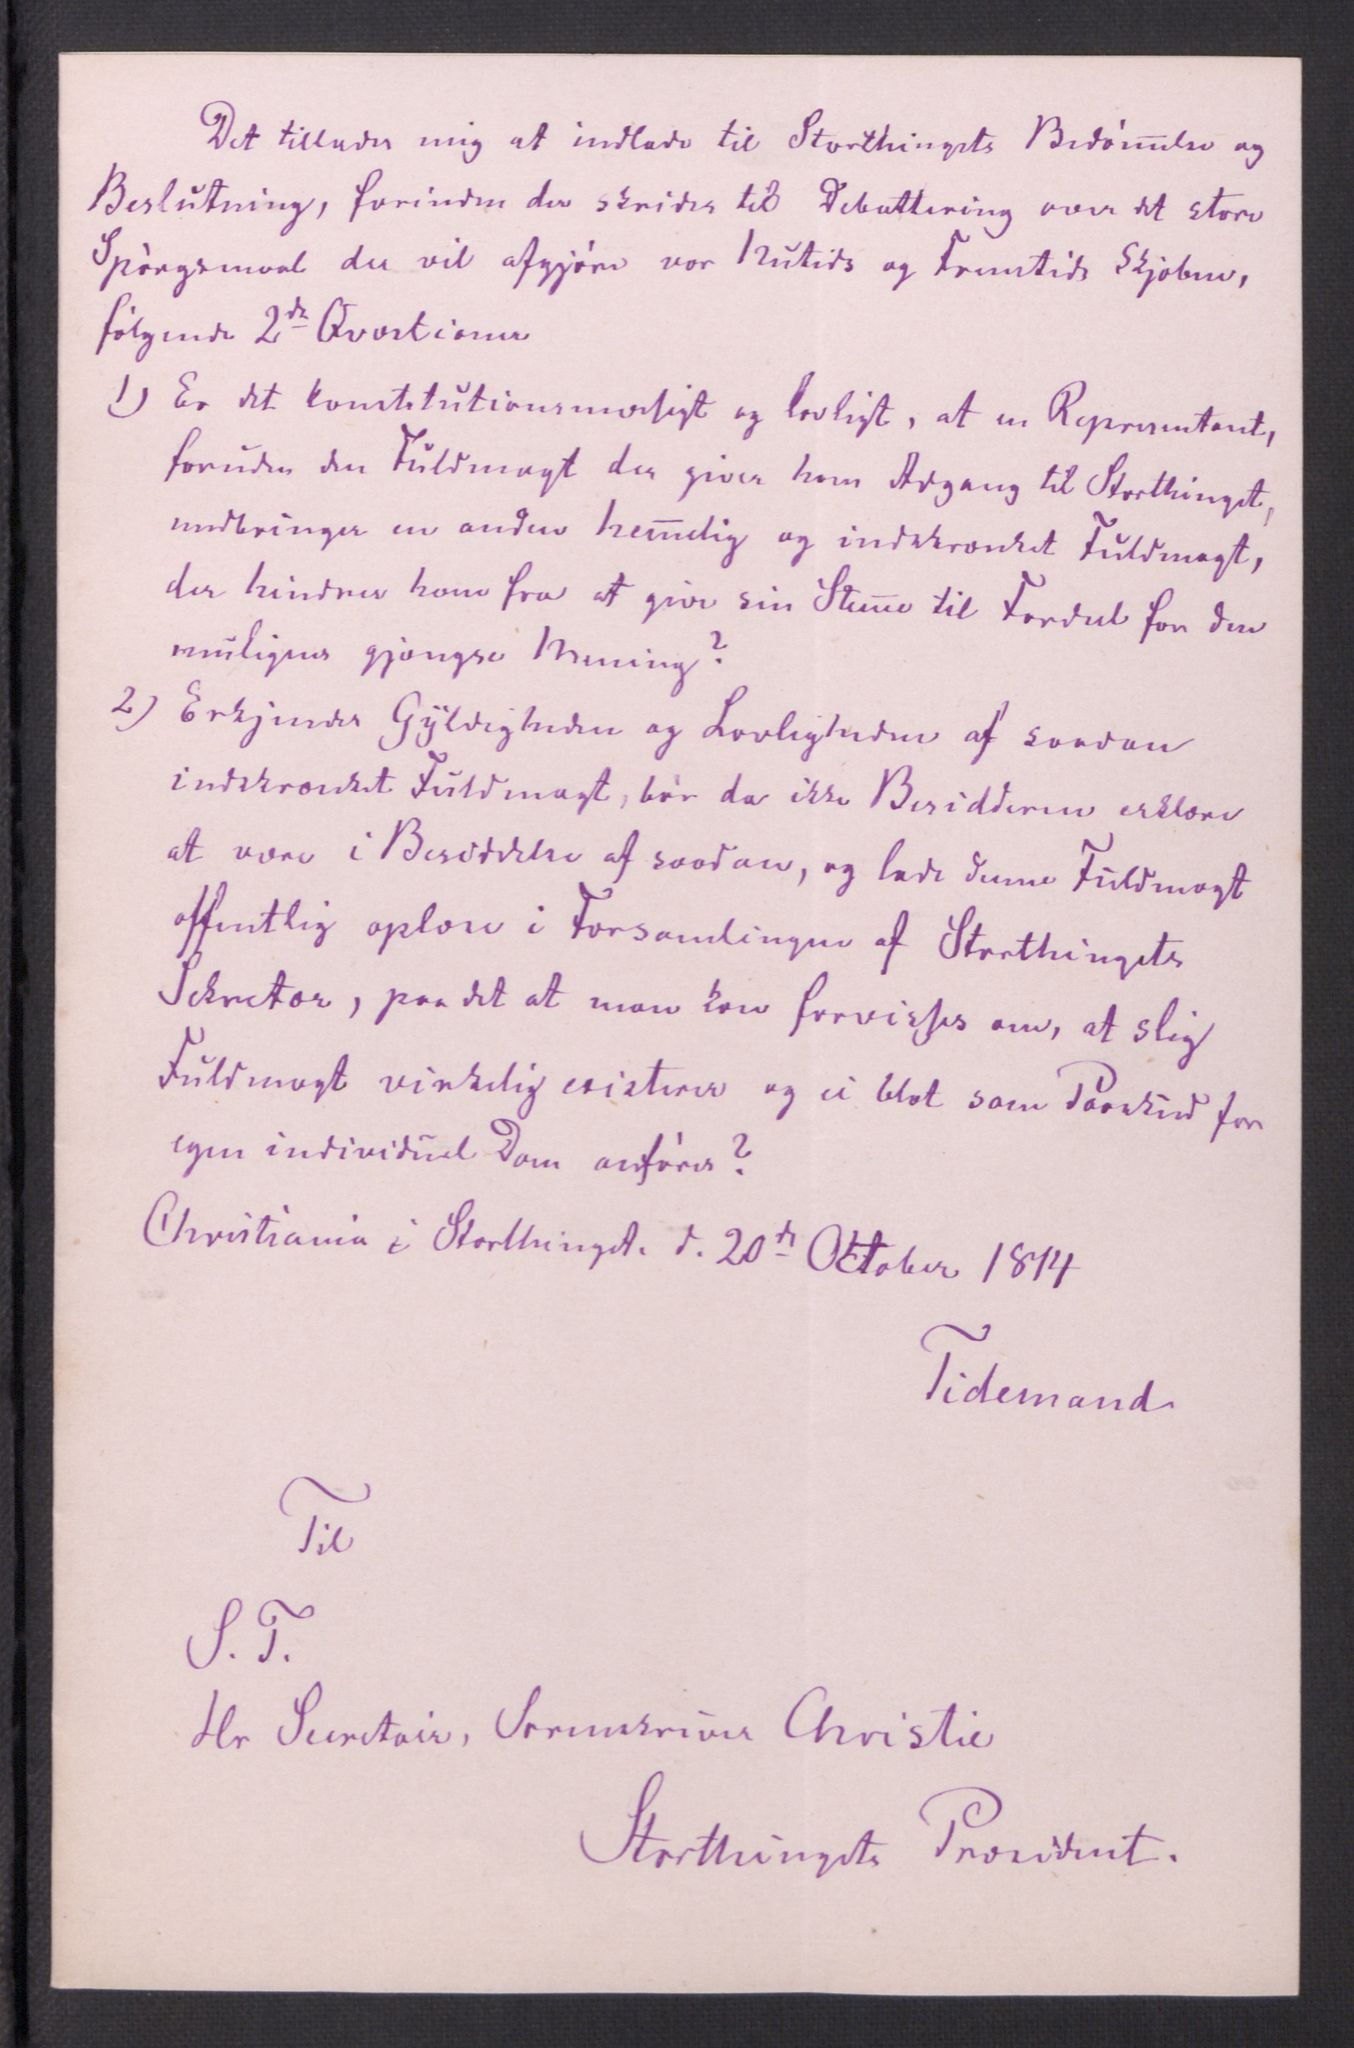 Det tillades mig at indlade til Storthingets Bedöm̅else og
Beslutning, forinden der skrides til Debattering over det store
Spörgsmaal der vil afgjöre vor Nutids og Fremtids Skjæbne,
fölgende 2de Qvæstioner
1) Er det konstitutionsmæsigt og lovligt, at en Representant,
foruden den Fuldmagt der giver ham Adgang til Storthinget,
medbringer en anden hem̅elig og indskrænket Fuldmagt,
der hindrer ham fra at give sin Stem̅e til Fordeel for den
muligens gjængse Mening?
2) Erkjendes Gyldigheden og Lovligheden af saadan
indskrænket Fuldmagt, bör da ikke Besidderen erklære
at være i Besiddelse af saadan, og lade denne Fuldmagt
offentlig oplæse i Forsamlingen af Storthingets
Sekretær, paa det at man kan forvisses om, at slig
Fuldmagt virkelig existerer og ei blot som Paaskud for
egen individuel Dom anföres?
Christiania i Storthinget. d. 20de Oktober 1814
Tidemand
Til
S. T.
Hr Secretair, Sorenskriver Christie
Storthingets Præsident.